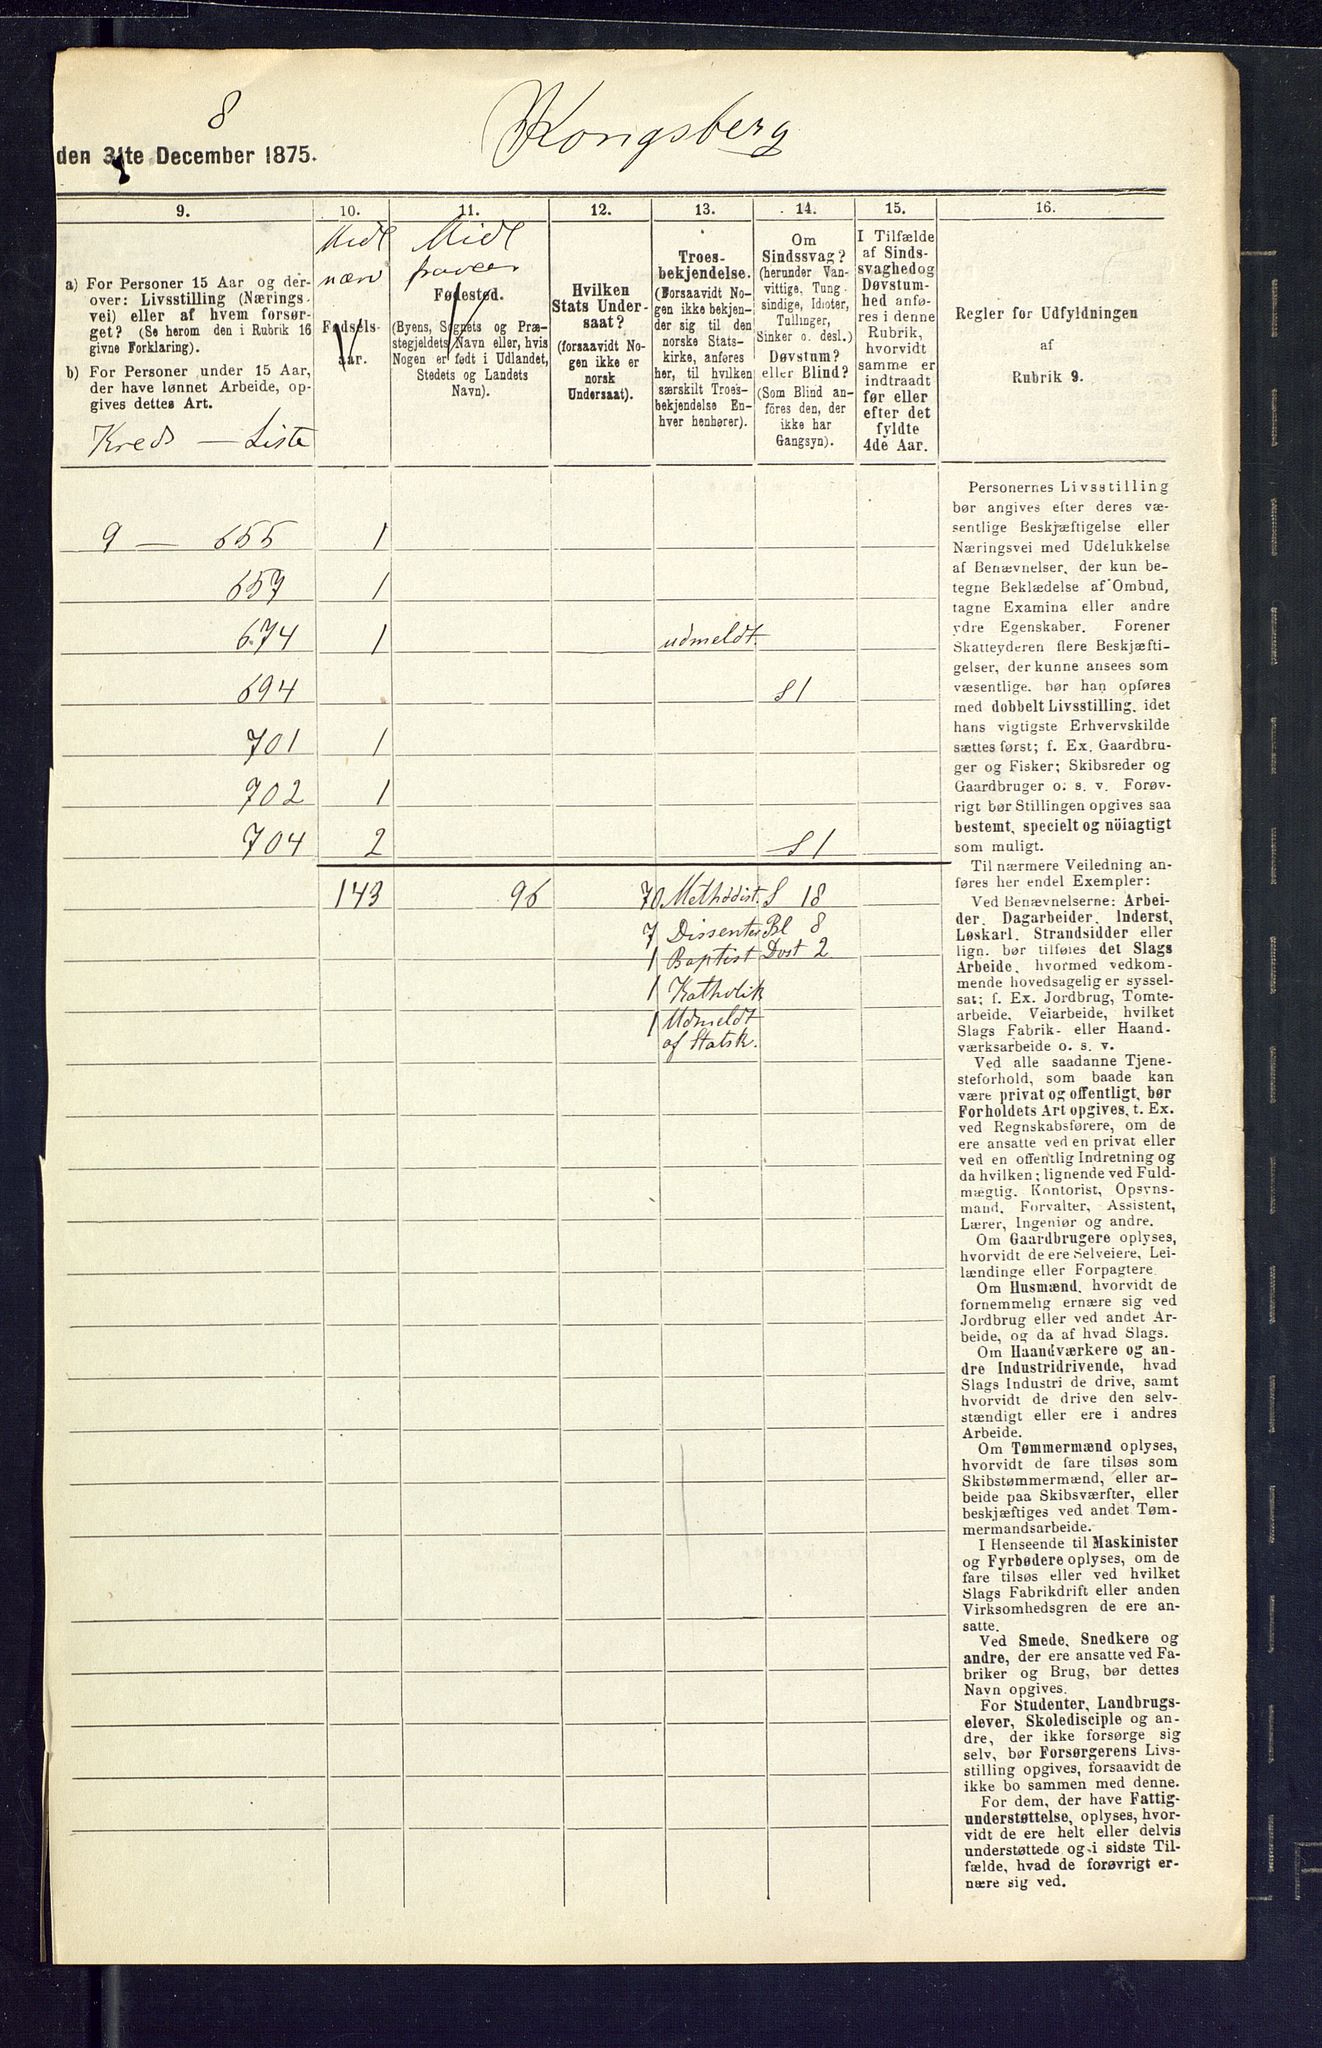 8
Kongsberg
den 31te December 1875.
9.
10.
11.
12.
13.
14.
15.
16.
Midl
nærv
Midl
fravær
a) For Personer 15 Aar og der-
over: Livsstilling (Nærings-
vei) eller af hvem forsør-
get? (Se herom den i Rubrik 16
givne Forklaring).
b) For Personer under 15 Aar,
der have lønnet Arbeide, op-
gives dettes Art.
Kreds — Liste
Fødsels-
aar.
Fødested.
(Byens, Sognets og Præ-
stegjeldets Navn eller, hvis
Nogen er født i Udlandet,
Stedets og Landets
Navn).
Hvilken
Stats Under-
saat?
(forsaavidt No-
gen ikke er
norsk
Undersaat).
Troes-
bekjendelse.
(Forsaavidt No-
gen ikke bekjen-
der sig til den
norske Stats-
kirke, anføres
her, til hvilken
særskilt Troes-
bekjendelse En-
hver henhører).
Om
Sindssvag?
(herunder Van-
vittige, Tung-
sindige, Idioter,
Tullinger,
Sinker o. desl.)
Døvstum?
eller Blind?
(Som Blind an-
föres den, der
ikke har
Gangsyn).
I Tilfælde
af Sinds-
svaghed og
Døvstum-
hed anfø-
res i denne
Rubrik,
hvorvidt
samme er
indtraadt
før eller
efter det
fyldte
4de Aar.
Regler for Udfyldningen
af
Rubrik 9.
9 — 655 1
657 1
674 1 udmeldt.
694 S 1
701 1
702 1
704 2 S 1
143 96 70 Methodist. S 18
7 Dissenter Bl 8
1 Baptist Døvst 2
1 Katholik
1 Udmeldt
af Statsk.
Personernes Livsstilling
bør angives efter deres væ-
sentlige Beskjæftigelse eller
Næringsvei med Udelukkelse
af Benævnelser, der kun be-
tegne Beklædelse af Ombud,
tagne Examina eller andre
ydre Egenskaber. Forener
Skatteyderen flere Beskjæfti-
gelser, der kunne ansees som
væsentlige, bør han opføres
med dobbelt Livsstilling, idet
hans vigtigste Erhvervskilde
sættes først; f. Ex. Gaardbru-
ger og Fisker; Skibsreder og
Gaardbruger o. s. v. Forøv-
rigt bør Stillingen opgives saa
bestemt, specielt og nöiagtigt
som muligt.
Til nærmere Veiledning an-
føres her endel Exempler:
Ved Benævnelserne: Arbei-
der, Dagarbeider, Inderst,
Løskarl, Strandsidder eller
lign. bør tilføies det Slags
Arbeide, hvormed vedkom-
mende hovedsagelig er syssel-
sat; f. Ex. Jordbrug, Tomte-
arbeide, Veiarbeide, hvilket
Slags Fabrik- eller Haand-
værksarbeide o. s. v.
Ved alle saadanne Tjene-
steforhold, som baade kan
være privat og offentligt, bør
Forholdets Art opgives, t. Ex.
ved Regnskabsførere, om de
ere ansatte ved en privat eller
ved en offentlig Indretning og
da hvilken; lignende ved Fuld-
mægtig, Kontorist, Opsyns-
mand, Forvalter, Assistent,
Lærer, Ingeniør og andre.
Om Gaardbrugere oplyses,
hvorvidt de ere Selveiere, Lei-
lændinge eller Forpagtere.
Om Husmænd, hvorvidt de
fornemmelig ernære sig ved
Jordbrug eller ved andet Ar-
beide, og da af hvad Slags.
Om Haandværkere og an-
dre Industridrivende, hvad
Slags Industri de drive, samt
hvorvidt de drive den selv-
stændigt eller ere i andres
Arbeide.
Om Tømmermænd oplyses,
hvorvidt de fare tilsøs som
Skibstømmermænd, eller ar-
beide paa Skibsværfter, eller
beskjæftiges ved andet Tøm-
mermandsarbeide.
I Henseende til Maskinister
og Fyrbødere oplyses, om de
fare tilsøs eller ved hvilket
Slags Fabrikdrift eller anden
Virksomhedsgren de ere an-
satte.
Ved Smede, Snedkere og
andre, der ere ansatte ved Fa-
briker og Brug, bør dettes
Navn opgives.
For Studenter, Landbrugs-
elever, Skoledisciple og an-
dre, der ikke forsørge sig
selv, bør Forsørgerens Livs-
stilling opgives, forsaavidt de
ikke bo sammen med denne.
For dem, der have Fattig-
understøttelse, oplyses, hvor-
vidt de ere helt eller delvis
understøttede og i sidste Til-
fælde, hvad de forøvrigt er-
nære sig ved.